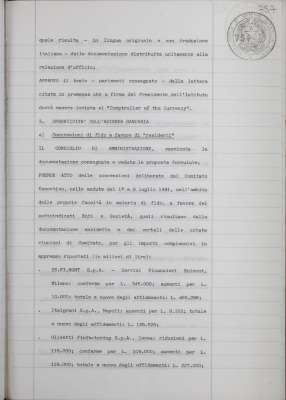 quale risulta - in lingua originale e con traduzione
italiana - dalla documentazione distribuita unitamente alla
relazione d'ufficio;
APPROVA il testo - parimenti consegnato - della lettera
citata in premessa che a firma del Presidente dell'Istituto
dovrà essere inviata al "Comptroller of the Currency".
OPERATIVITA' DELL'AZIENDA BANCARIA
a) Concessioni di fido a favore di "Residenti"
IL CONSIGLIO DI AMMINISTRAZIONE, esaminata la
documentazione consegnata e vedute le proposte formulate;
PRENDE ATTO delle concessioni deliberate dal Comitato
Esecutivo, nelle sedute del 1° e 8 luglio 1981, nell'ambito
delle proprie facoltà in materia di fido, a favore dei
sottoindicati Enti e Società, quali risultano dalla
documentazione assistita e dai verbali delle citate
riunioni di Comitato, per gli importi complessivi in
appresso riportati (in milioni di lire):
. SE.FI.MONT S.p.A. - Servizi Finanziari Enimont,
Milano: conferme per L. aumenti per L.
totale a nuovo degli affidamenti: L.
. Italgrani S.p.A., Napoli: aumenti per L. totale
a nuovo degli affidamenti: L.
. Olivetti Finfactoring S.p.A., Ivrea: riduzioni per L.
conferme per L. aumenti per L.
totale a nuovo degli affidamenti: L.